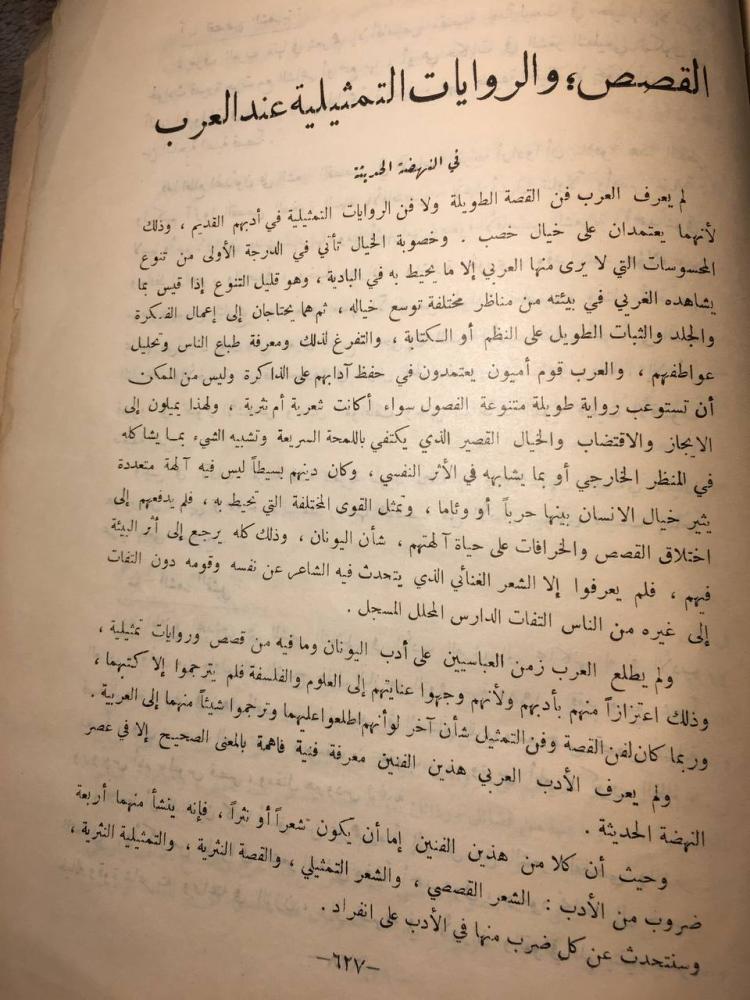 القصص، والروايات التمثيلية عند العرب
في النهضة الحديثة
لم يعرف العرب فن القصة الطويلة ولا فن الروايات التمثيلية في أدبهم القديم ، وذلك
لأنهما يعتمدان على خيال خصب . وخصوبة الخيال تأتي في الدرجة الأولى من تنوع
المحسوسات التي لا يرى منها العربي إلا ما يحيط به في البادية ، وهو قليل التنوع إذا قيس بما
يشاهده الغربي في بيئته من مناظر مختلفة توسع خياله ، ثم هما يحتاجان إلى إعمال الفكرة
والجلد والثبات الطويل على النظم أو الكتابة ، والتفرغ لذلك ومعرفة طباع الناس وتحليل
عواطفهم ، والعرب قوم أميون يعتمدون في حفظ آدابهم على الذاكرة وليس من الممكن
أن تستوعب رواية طويلة متنوعة الفصول سواء أكانت شعرية أم نثرية ، ولهذا يميلون إلى
الايجاز والاقتضاب والخيال القصير الذي يكتفي باللمحة السريعة وتشبيه الشيء بما يشاكله
في المنظر الخارجي أو بما يشابهه في الأثر النفسي ، وكان دينهم بسيطاً ليس فيه آلهة متعددة
يثير خيال الانسان بينها حرباً أو وئاما ، وتمثل القوى المختلفة التي تحيط به ، فلم يدفعهم إلى
اختلاق القصص والخرافات على حياة آلهتهم ، شأن اليونان ، وذلك كله يرجع إلى أثر البيئة
فيهم ، فلم يعرفوا إلا الشعر الغنائي الذي يتحدث فيه الشاعر عن نفسه وقومه دون التفات
إلى غيره من الناس التفات الدارس المحلل المسجل .
ولم يطلع العرب زمن العباسيين على أدب اليونان وما فيه من قصص وروايات تمثيلية ،
وذلك اعتزازاً منهم بأدبهم ولأنهم وجهوا عنايتهم إلى العلوم والفلسفة فلم يترجموا إلا كتبهما ،
وربما كان لفن القصة وفن التمثيل شأن آخر لو أنهم اطلعوا عليهما وترجموا شيئاً منهما إلى العربية .
ولم يعرف الأدب العربي هذين الفنين معرفة فنية فاهمة بالمعنى الصحيح إلا في عصر
النهضة الحديثة .
وحيث أن كلا من هذين الفنين إما أن يكون شعراً أو نثراً ، فإنه ينشأ منهما أربعة
ضروب من الأدب : الشعر القصصي ، والشعر التمثيلي ، والقصة النثرية ، والتمثيلية النثرية ،
وسنتحدث عن كل ضرب منها في الأدب على انفراد .
—٦٢٧—